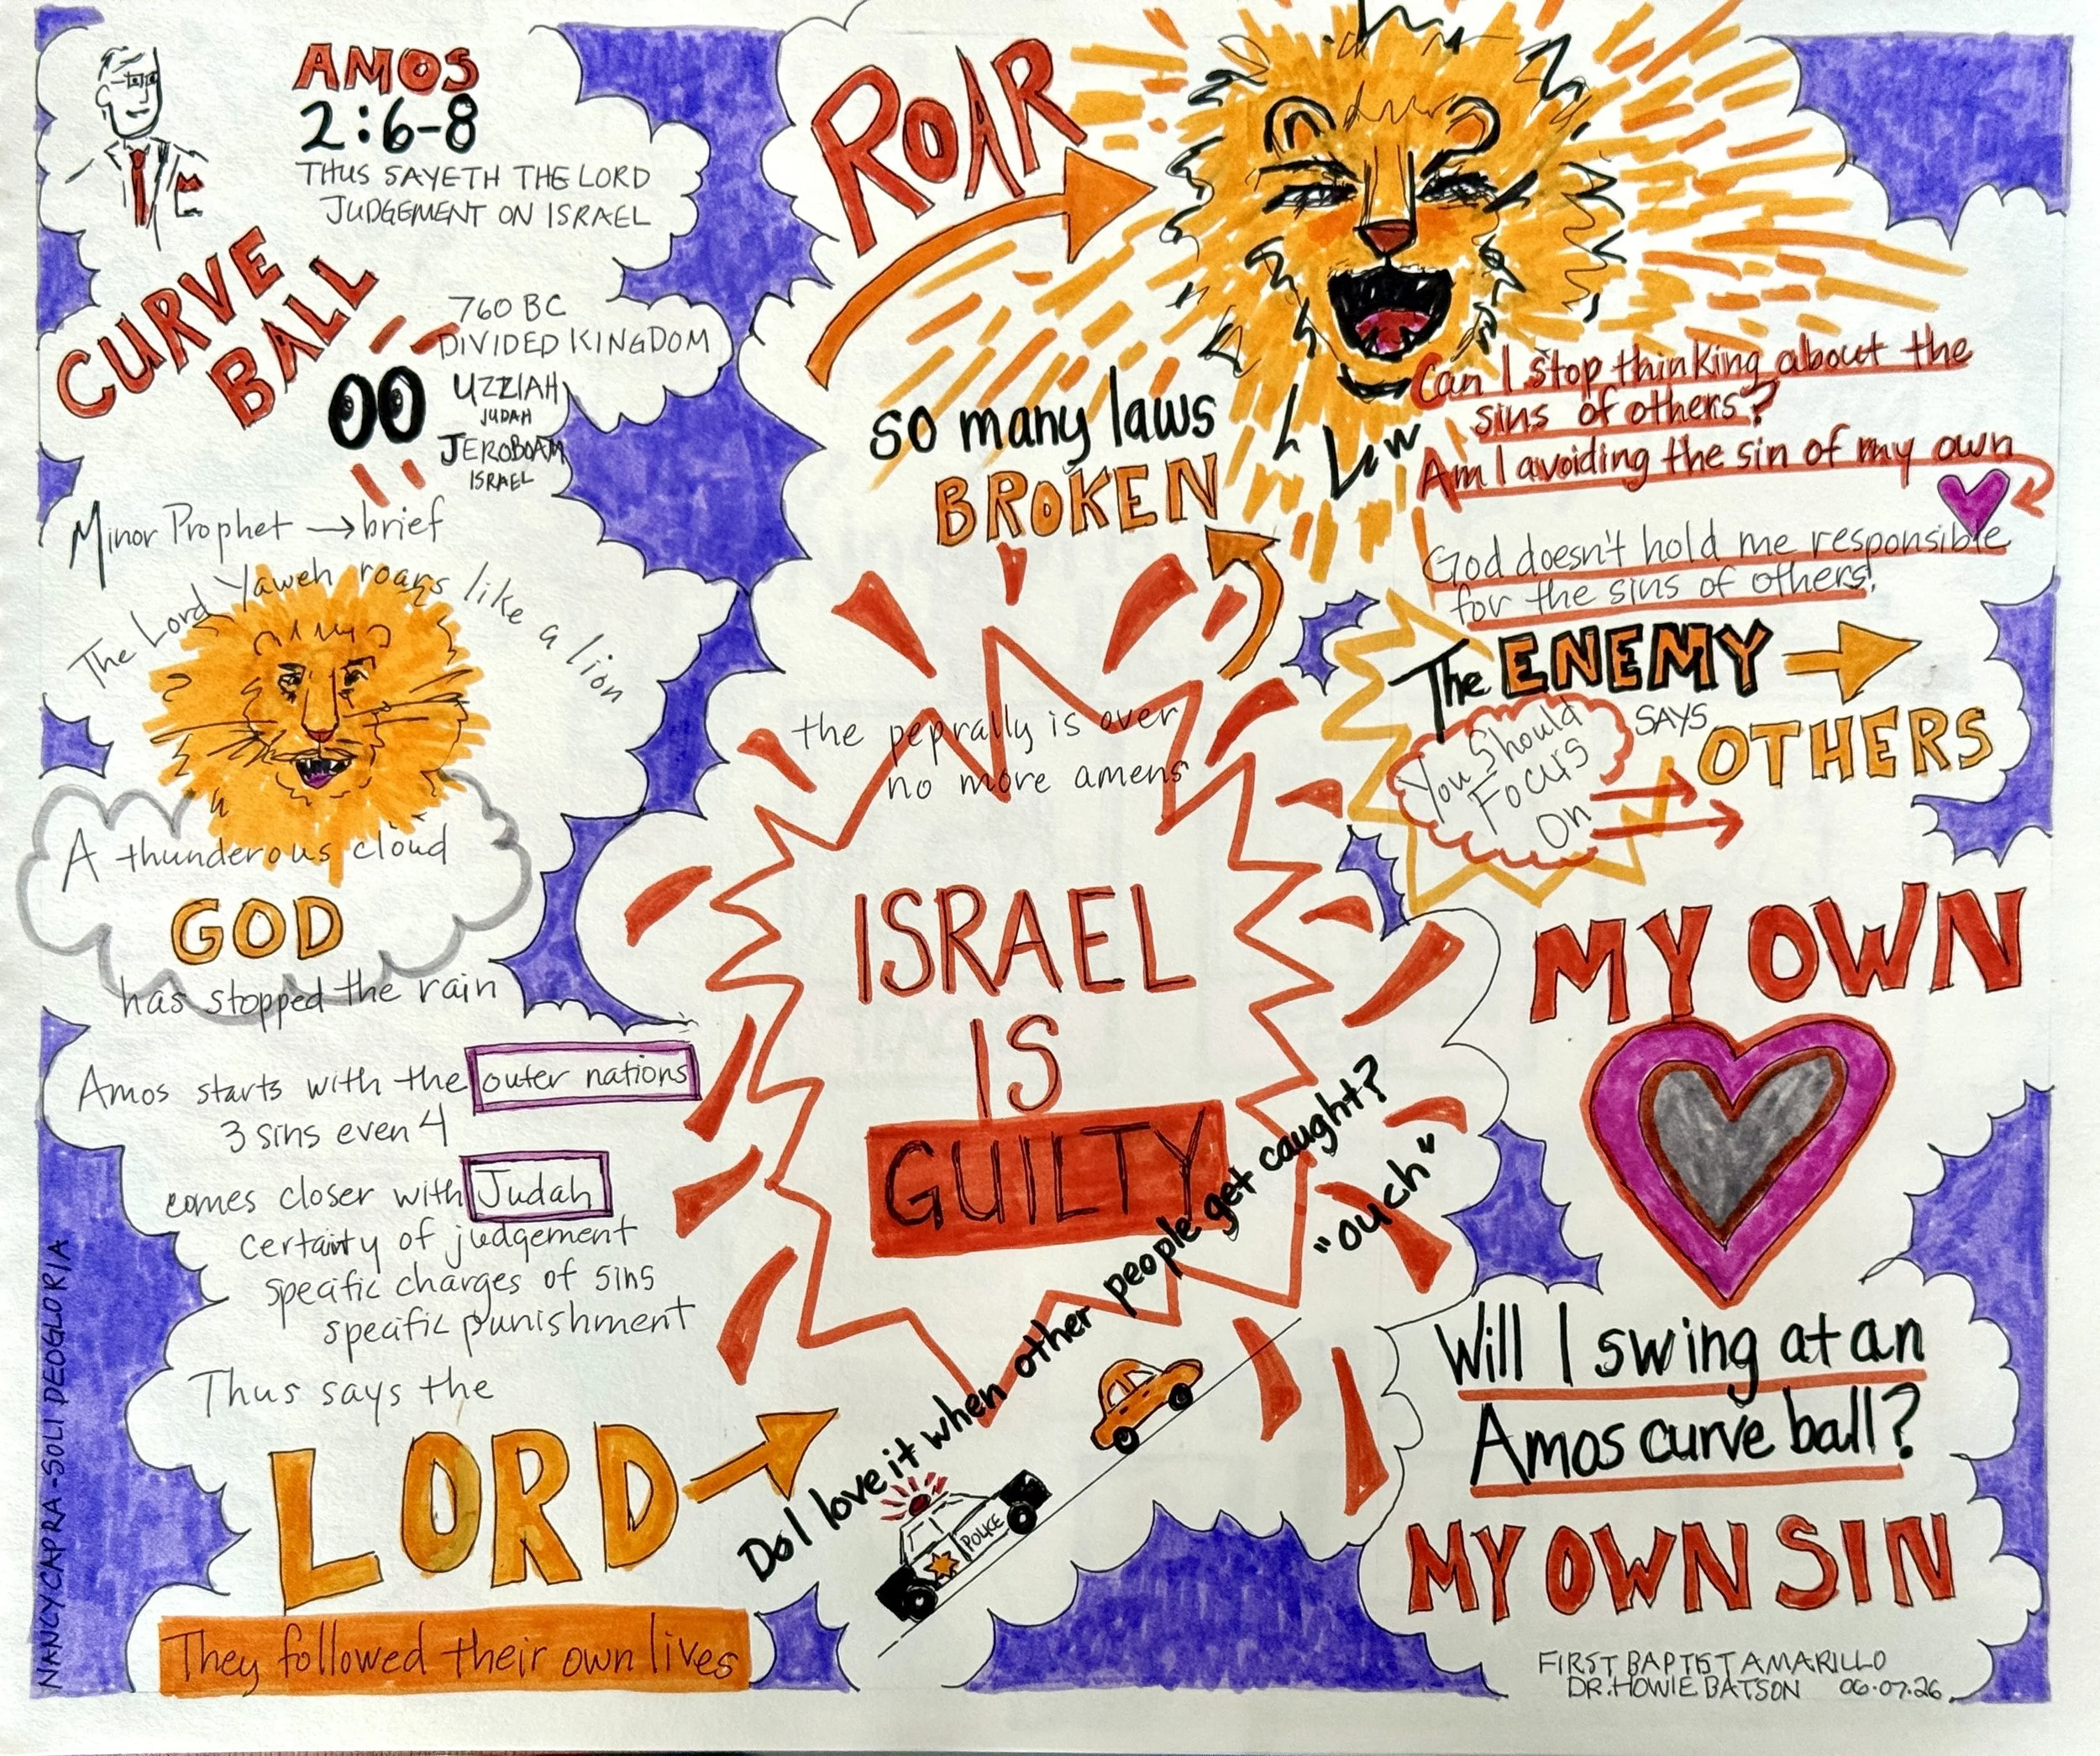 AMOS
2:6-8
THUS SAYETH THE LORD
JUDGEMENT ON ISRAEL
CURVE
BALL
760 BC
DIVIDED KINGDOM
UZZIAH
JUDAH
JEROBOAM
ISRAEL
Minor Prophet → brief
The Lord Yaweh roars like a lion
A thunderous cloud
GOD
has stopped the rain
Amos starts with the outer nations
3 sins even 4
comes closer with Judah
certainty of judgement
specific charges of sins
specific punishment
Thus says the
LORD
They followed their own lives
NANCY CAPRA - SOLI DEOGLORIA
ROAR
so many laws
BROKEN
the peprally is over
no more amens
ISRAEL
IS
GUILTY
Do I love it when other people get caught?
"ouch"
POLICE
Can I stop thinking about the
sins of others?
Am I avoiding the sin of my own
God doesn't hold me responsible
for the sins of others!
The ENEMY
SAYS
You Should
Focus
On
OTHERS
MY OWN
Will I swing at an
Amos curve ball?
MY OWN SIN
FIRST BAPTIST AMARILLO
DR. HOWIE BATSON 06.07.26